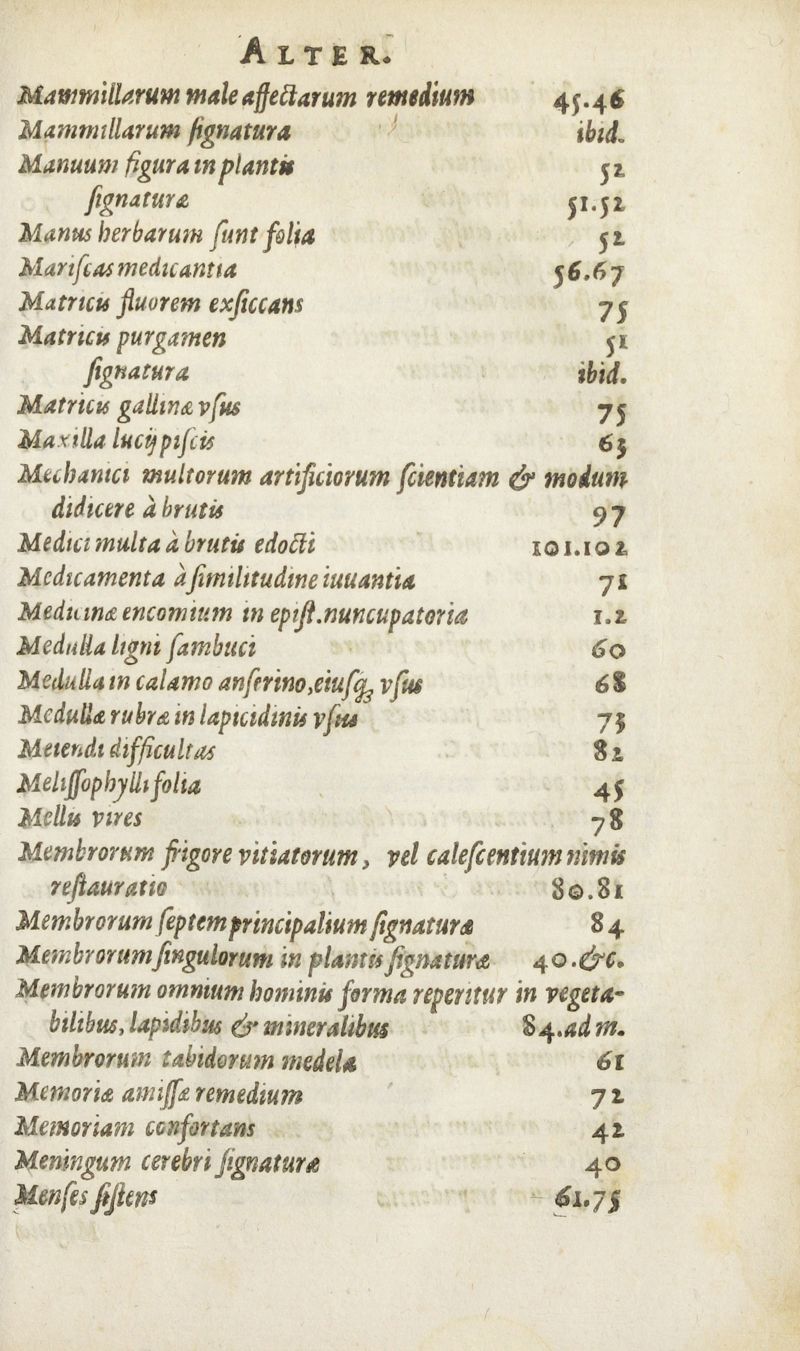 ALTER.
Mammillarum male affectarum remedium 45.46
Mammillarum ſignatura ibid.
Manuum figura in plantis 52
ſignaturæ 51.52
Manus herbarum ſunt folia 52
Mariſcas medicantia 56.67
Matricis fluorem exſiccans 75
Matricis purgamen 51
ſignatura ibid.
Matricis gallinæ vſus 75
Maxilla lucij piſcis 63
Mechanici multorum artificiorum ſcientiam & modum
didicere à brutis 97
Medici multa à brutis edocti 101.102
Medicamenta à ſimilitudine iuuantia 71
Medicinæ encomium in epiſt.nuncupatoria 1.2
Medulla ligni ſambuci 60
Medulla in calamo anſerino,eiuſq; vſus 68
Medullæ rubræ in lapicidinis vſus 73
Metendi difficultas 82
Meliſſophylli folia 45
Mellis vires 78
Membrorum frigore vitiatorum, vel caleſcentium nimis
reſtauratio 80.81
Membrorum ſeptem principalium ſignatura 84
Membrorum ſingulorum in plantis ſignaturæ 40.&c.
Membrorum omnium hominis forma reperitur in vegeta-
bilibus, lapidibus & mineralibus 84.ad m.
Membrorum tabidorum medela 61
Memoriæ amiſſæ remedium 72
Memoriam confortans 42
Meningum cerebri ſignaturæ 40
Menſes ſiſtens 61.75